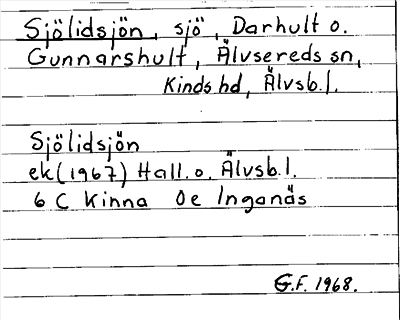 Sjölidsjön, sjö, Darhult o.
Gunnarshult, Älvsereds sn,
Kinds hd, Älvsb.l.
Sjölidsjön
ek(1967) Hall. o. Älvsb.l.
6 C Kinna 0e Inganäs
G.F. 1968.